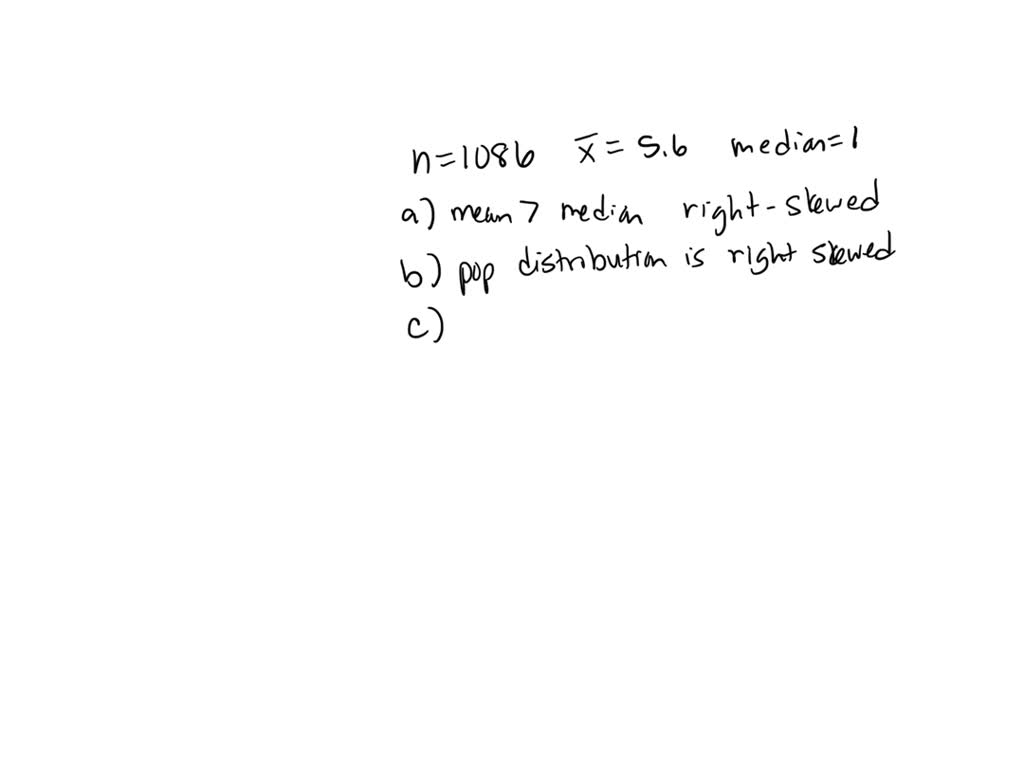 n=1086 x̄ = 5.6 median=1
a) mean > median right-skewed
b) pop distribution is right skewed
c)